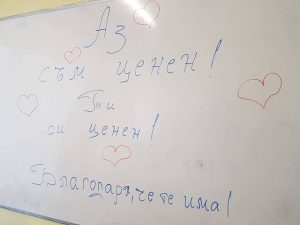 Аз
съм ценен!
Ти
си ценен!
Благодаря, че те има!